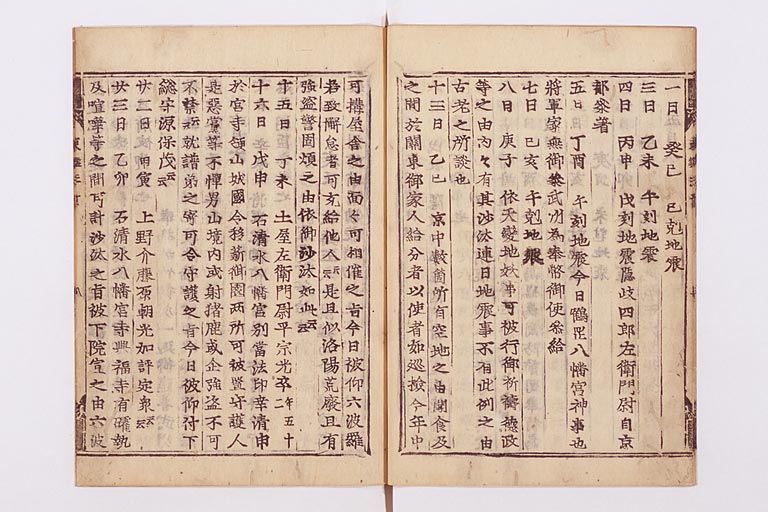 一日 癸巳 巳剋地震
三日 乙未 午刻地震
四日 丙申 戊刻地震隠岐四郎左衛門尉自京
都参著
五日 丁酉 午刻地震今日鶴岡八幡宮神事也
将軍家無御参武州為奉幣御使参給
七日 己亥 午剋地震
八日 庚子 依天變地妖事可被行御祈禱徳政
等之由内々有其沙汰連日地震事不有此例之由
古老之所談也
十三日 乙巳 京中數箇所有空地之由聞食及
之間於關東御家人給分者以使者如巡撿今年中
可構屋舎之由面々可相催之旨今日被仰六波羅
若致懈怠者可充給他人云云是且似洛陽荒廢且有
強盗警固煩之由依御沙汰如此云云
十五日 丁未 土屋左衛門尉平宗光卒年五十
十六日 戊申 石清水八幡宮別當法印幸清申
於宮寺領山城國今移薪御園兩所可被置守護人
是惡黨等不憚男山境内或射猪鹿或企強盗不可
不禁云云就請弟之寄可令守護之旨今日被仰付下
総守源保茂云云
廿二日 甲寅 上野介藤原朝光加評定衆云云
廿三日 乙卯 石清水八幡宮寺興福寺有確執
及喧嘩等之間可計沙汰之旨被下院宣之由六波